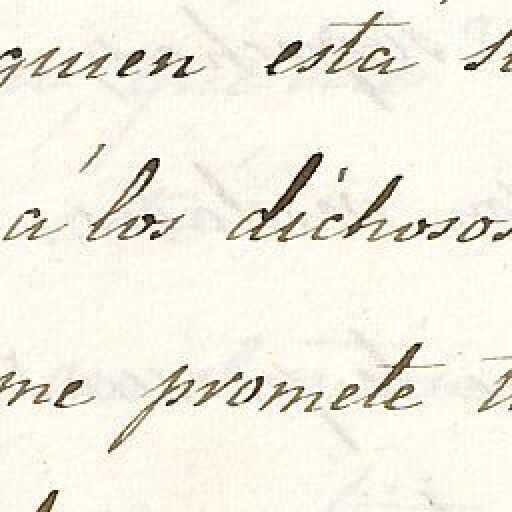 quien esta
á los dichosos
me promete